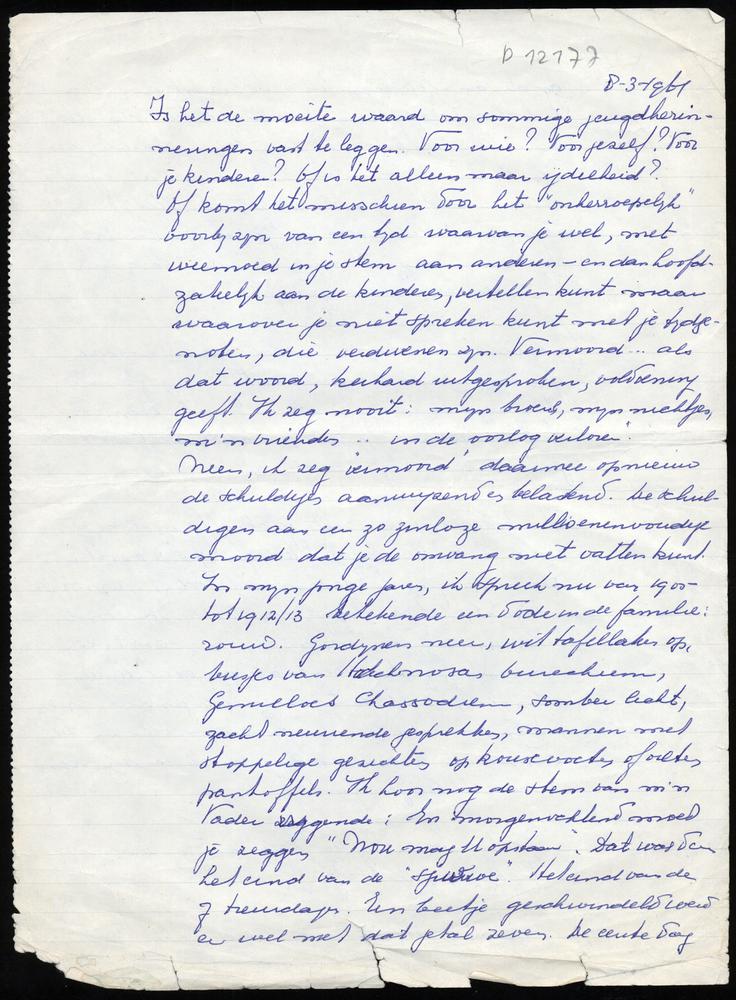 D 12177
8-3-1961
Is het de moeite waard om sommige jeugdherin-
neringen vast te leggen. Voor wie? Voor jezelf? Voor
je kinderen? Of is het alleen maar ijdelheid?
Of komt het misschien door het "onherroepelijk"
voorbij zijn van een tijd waarvan je wel, met
weemoed in je stem aan anderen – en dan hoofd-
zakelijk aan de kinderen, vertellen kunt maar
waarover je niet spreken kunt met je tijdge-
noten, die verdwenen zijn. Vermoord... als
dat woord, keihard uitgesproken, voldoening
geeft. Ik zeg nooit: mijn broers, mijn nichtjes,
m'n vrienden .. in de oorlog verloren".
Neen, ik zeg "vermoord" daarmee opnieuw
de schuldigen aanwijzend en beladend. De schul-
digen aan een zo zinloze millioenenvoudige
moord dat je de omvang niet vatten kunt.
In mijn jonge jaren, ik spreek nu van 1905
tot 1912/13 betekende een dode in de familie:
rouw. Gordijnen neer, wit tafellaken op,
busjes van
Gemilloes Chassodiem, somber licht,
zacht neurende gesprekken, mannen met
stoppelige gezichten op kousevoeten of vilten
pantoffels. Ik hoor nog de stem van m'n
Vader zeggende: En morgenochtend moet
je zeggen "Nou mag U opstaan". Dat was dan
het eind van de "sjiwwe". Het eind van de
7 treurdagen. Een beetje geschwindeld werd
er wel met dat getal zeven. De eerste dag